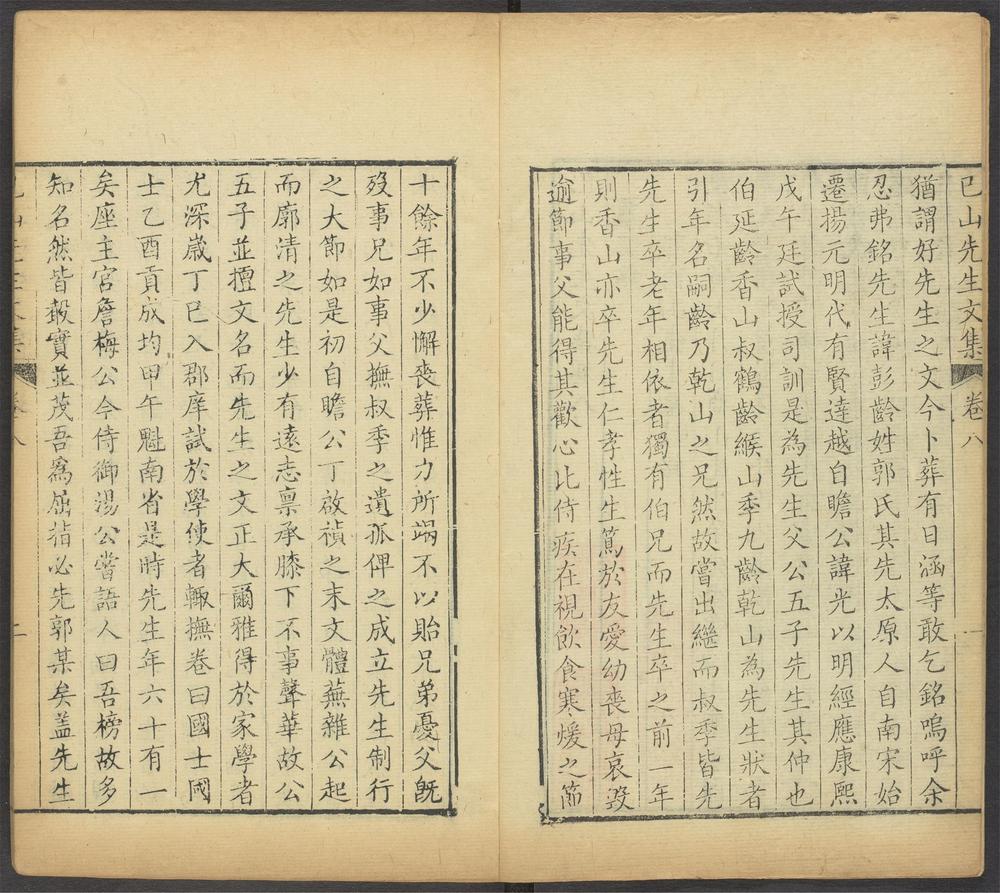 已山先生文集 卷八 一
猶謂好先生之文今卜葬有日涵等敢乞銘嗚呼余
忍弗銘先生諱彭齡姓郭氏其先太原人自南宋始
遷揚元明代有賢達越自瞻公諱光以明經應康熙
戊午廷試授司訓是為先生父公五子先生其仲也
伯延齡香山叔鶴齡緱山季九齡乾山為先生狀者
引年名嗣齡乃乾山之兄然故嘗出繼而叔季皆先
先生卒老年相依者獨有伯兄而先生卒之前一年
則香山亦卒先生仁孝性生篤於友愛幼喪母哀毀
逾節事父能得其歡心比侍疾在視飲食寒煖之節
十餘年不少懈喪葬惟力所竭不以貽兄弟憂父既
歿事兄如事父撫叔季之遺孤俾之成立先生制行
之大節如是初自瞻公丁啟禎之末文體蕪雜公起
而廓清之先生少有遠志禀承膝下不事聲華故公
五子並擅文名而先生之文正大爾雅得於家學者
尤深歲丁巳入郡庠試於學使者輙撫卷曰國士國
士乙酉貢成均甲午魁南省是時先生年六十有一
矣座主官詹梅公今侍御湯公嘗語人曰吾榜故多
知名然皆榖實並茂吾爲屈指必先郭某矣盖先生